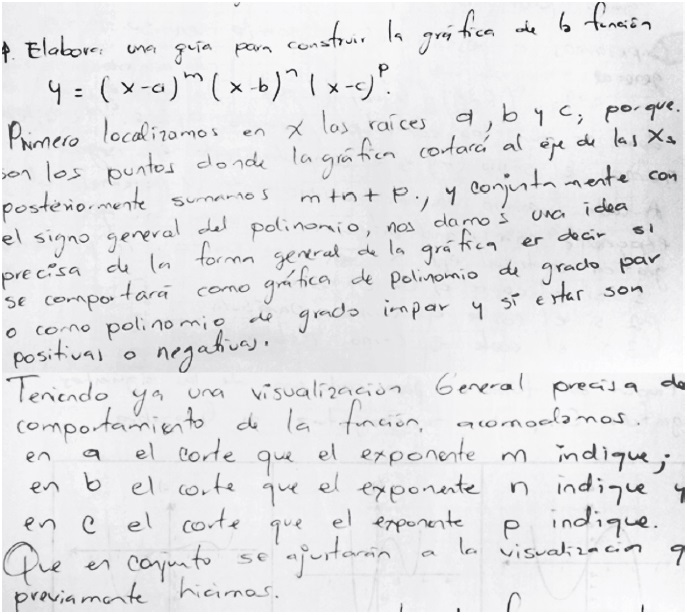 1. Elaborar una guía para construir la gráfica de la función
y = (x-a)^m (x-b)^n (x-c)^p.
Primero localizamos en x las raíces a, b y c; porque
son los puntos donde la gráfica cortará al eje de las Xs
posteriormente sumamos m+n+p., y conjuntamente con
el signo general del polinomio, nos damos una idea
precisa de la forma general de la gráfica es decir si
se comportará como gráfica de polinomio de grado par
o como polinomio de grado impar y si estas son
positivas o negativas.
Teniendo ya una visualización General precisa de
comportamiento de la función, acomodamos.
en a el corte que el exponente m indique;
en b el corte que el exponente n indique y
en c el corte que el exponente p indique.
Que en conjunto se ajustarán a la visualización q
previamente hicimos.